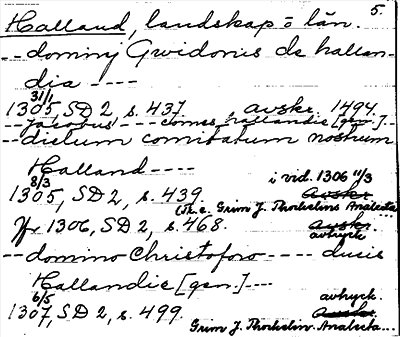 5.
Halland, landskap o län.
-- dominj Gwidonis de hallan-
dia ----
31/1
1305, SD 2, s. 437. , avskr. 1494.
-- Jacobus -- comes hallandie [gen.] --
-- dictum comitatum nostrum
Halland ----
8/3 i vid. 1306 11/3
1305, SD 2, s. 439. Avskr.
(tr. e. Grim J. Thorkelins Analecta...
Jfr 1306, SD 2, s. 468. avskr.
avtryck
-- domino Christoforo ---- ducis
Hallandie [gen.] ---
6/5 avtryck.
1307, SD 2, s. 499. Avskr.
Grim J. Thorkelin. Analecta...